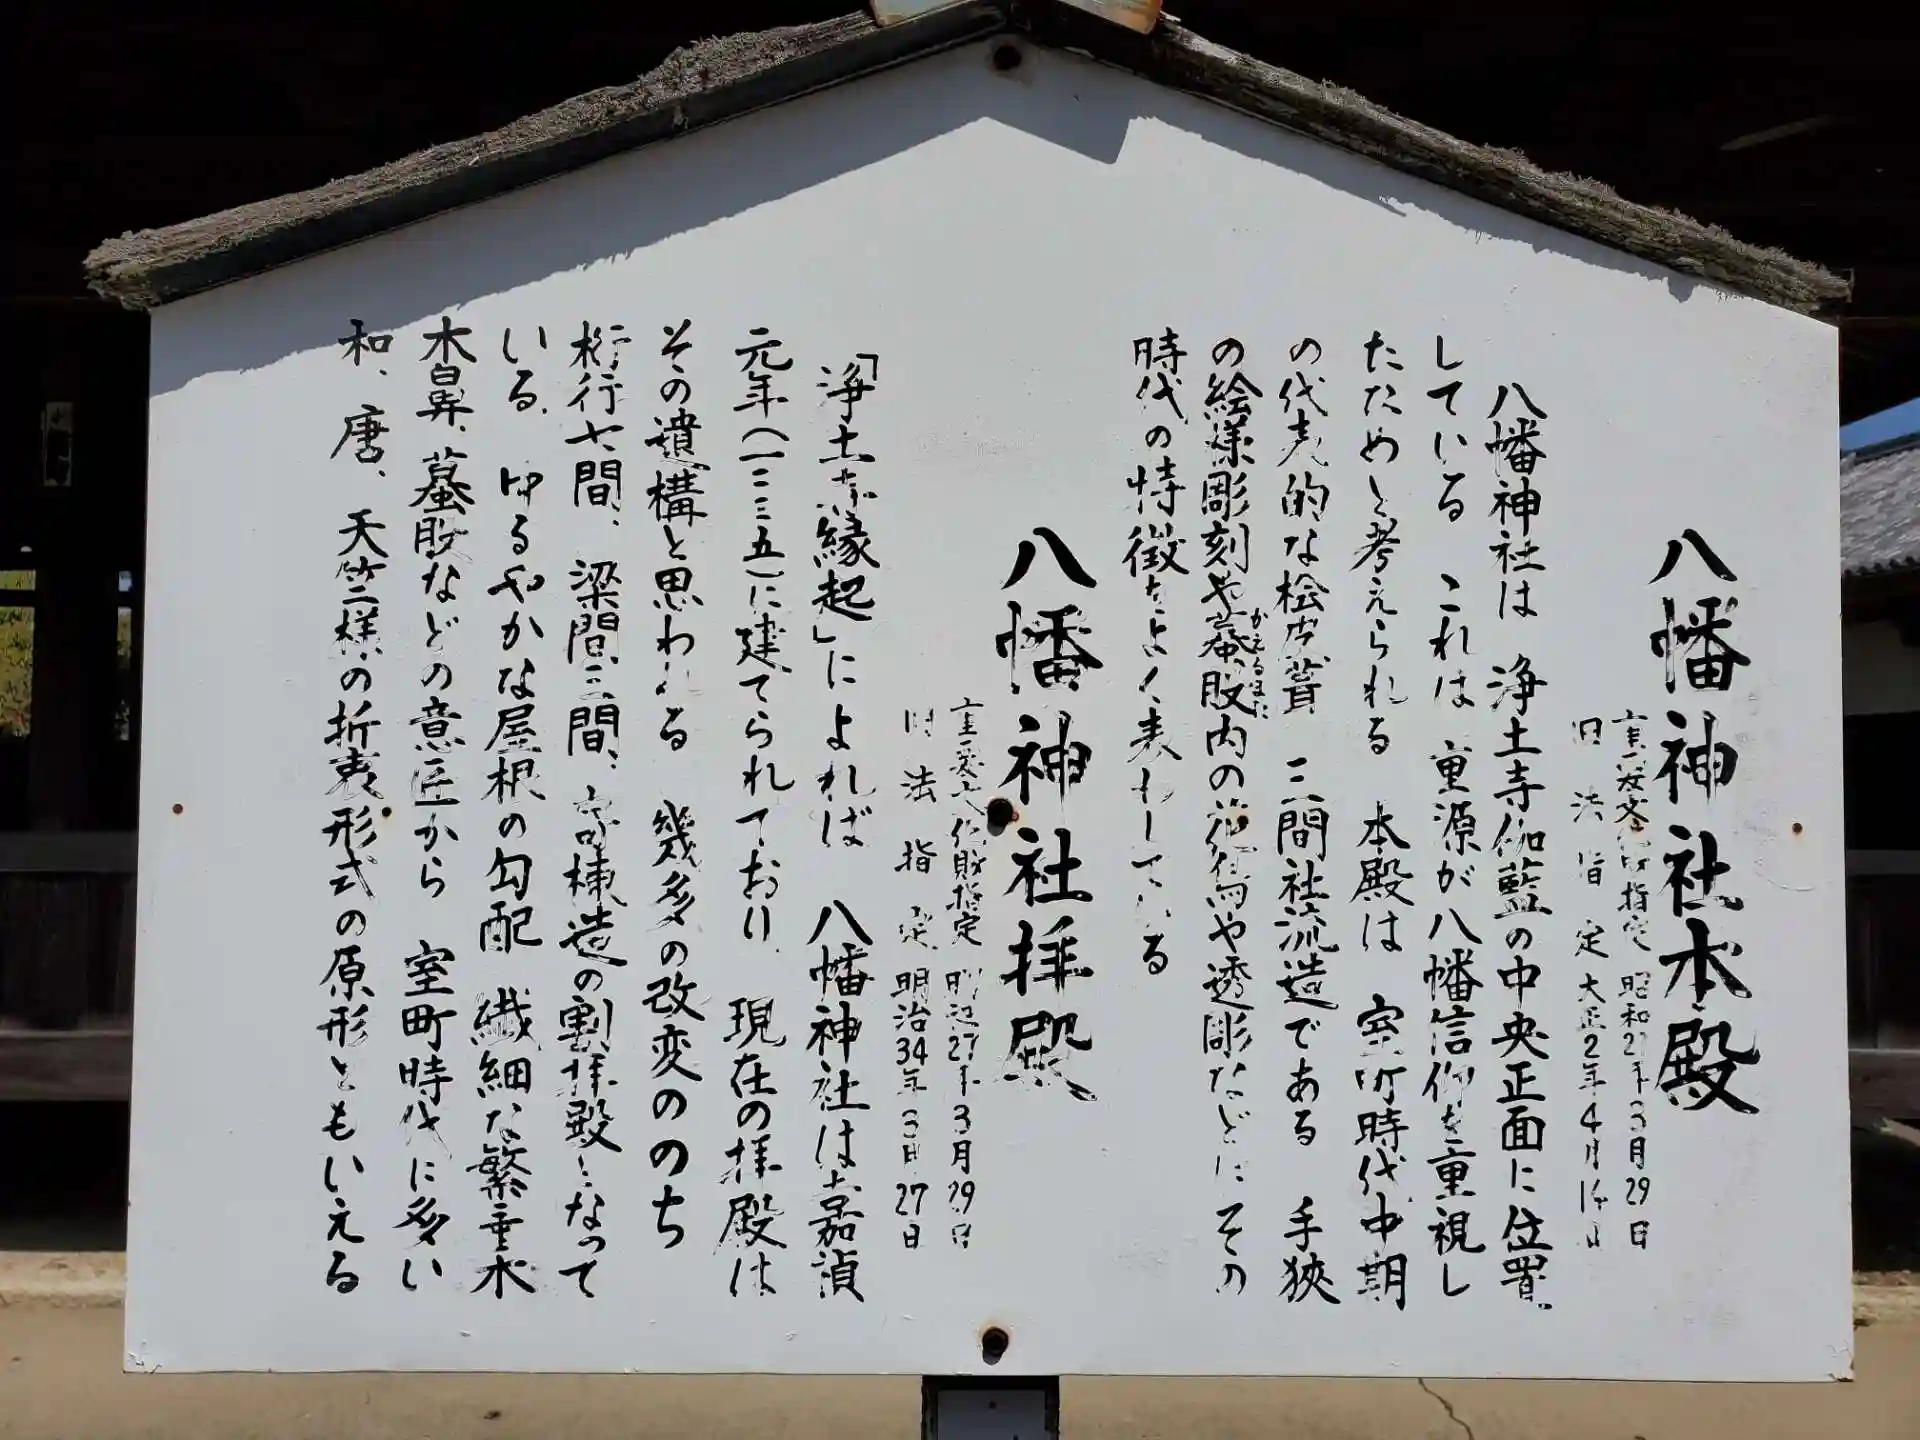 八幡神社本殿
重要文化財指定 昭和27年3月29日
旧法指定 大正2年4月14日
八幡神社は 浄土寺伽藍の中央正面に位置
している これは 重源が八幡信仰を重視し
たためと考えられる 本殿は 室町時代中期
の代表的な桧皮葺 三間社流造である 手狭
の絵様彫刻や蟇股内の花鳥や透彫などにその
かえるまた
時代の特徴をよく表わしている
八幡神社拝殿
重要文化財指定 昭和27年3月29日
旧法指定 明治34年3月27日
「浄土寺縁起」によれば 八幡神社は嘉禎
元年(一二三五)に建てられており 現在の拝殿は
その遺構と思われる 幾多の改変ののち
桁行七間、梁間三間、寄棟造の割拝殿となって
いる ゆるやかな屋根の勾配 繊細な繁垂木
木鼻、蟇股などの意匠から 室町時代に多い
和、唐、天竺様の折衷形式の原形ともいえる